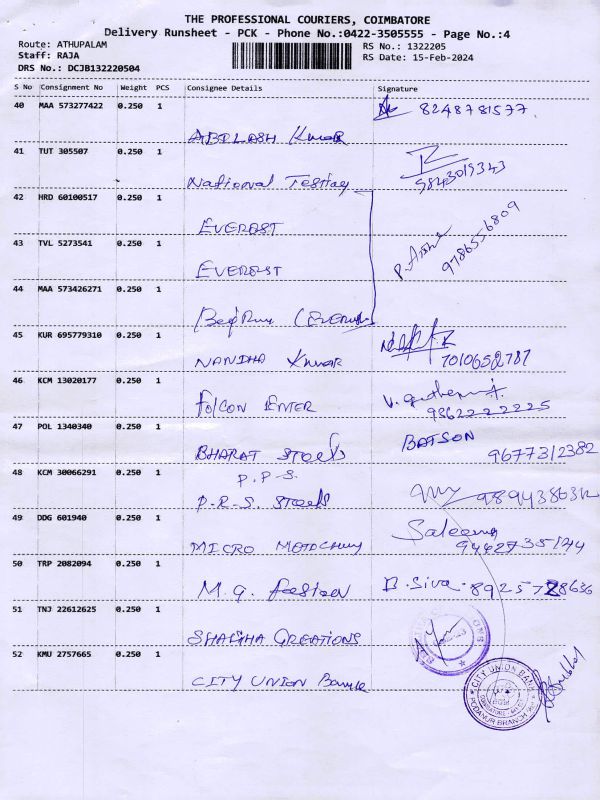 THE PROFESSIONAL COURIERS, COIMBATORE
Delivery Runsheet - PCK - Phone No.:0422-3505555 - Page No.:4
Route: ATHUPALAM RS No.: 1322205
Staff: RAJA RS Date: 15-Feb-2024
DRS No.: DCJB132220504
S No Consignment No Weight PCS Consignee Details Signature
40 MAA 573277422 0.250 1 8248781577
ABILASH Kumar
41 TUT 305507 0.250 1
National Testing 9843019343
42 HRD 60100517 0.250 1
EVEREST 9786556809
43 TVL 5273541 0.250 1 P.
EVEREST
44 MAA 573426271 0.250 1
45 KUR 695779310 0.250 1
NANDHA Kumar 7010652787
46 KCM 13020177 0.250 1
FOLCON ENTER 9862222225
47 POL 1340340 0.250 1 BATSON
BHARAT Steels 9677312382
48 KCM 30066291 0.250 1 P.P.S.
P.R.S. Steels
49 DDG 601940 0.250 1 Saleema
MICRO
50 TRP 2082094 0.250 1
M.G. B. Siva 8925728636
51 TNJ 22612625 0.250 1
CREATIONS
52 KMU 2757665 0.250 1
CITY UNION Bank
CITY UNION BANK
PODANUR BRANCH